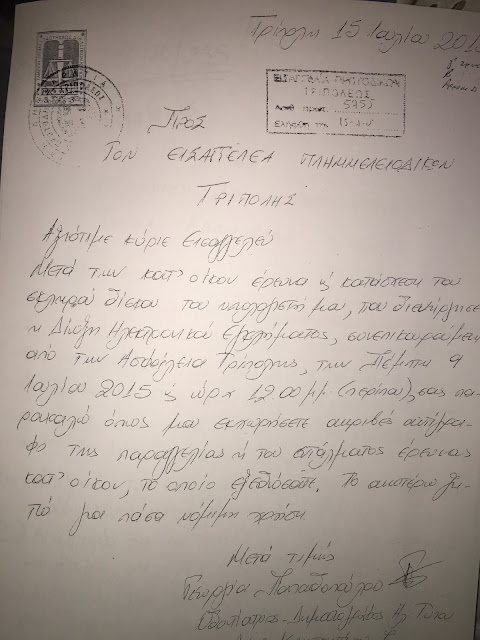 Τρίπολη 15 Ιουλίου 2015
ΕΙΣΑΓΓΕΛΙΑ ΠΛΗΜ/ΔΙΚΩΝ
ΤΡΙΠΟΛΕΩΣ
Αριθ. πρωτ. 5955
ΠΡΟΣ
ΤΟΝ ΕΙΣΑΓΓΕΛΕΑ ΠΛΗΜΜΕΛΕΙΟΔΙΚΩΝ
ΤΡΙΠΟΛΗΣ
Αξιότιμε κύριε Εισαγγελεύ
Μετά την κατ' οίκον έρευνα & κατάσχεση του
σκληρού δίσκου του υπολογιστή μου, που διενήργησε
η Δίωξη Ηλεκτρονικού Εγκλήματος, συνεπικουρούμενη
από την Ασφάλεια Τρίπολης, την Πέμπτη 9
Ιουλίου 2015 & ώρα 12.00 μμ (περίπου), σας πα-
ρακαλώ όπως μου εκχωρήσετε ακριβές αντίγρα-
φο της παραγγελίας ή του εντάλματος έρευνας
κατ' οίκον, το οποίο εξεδόσατε. Το ανωτέρω ζη-
τώ για πάσα νόμιμη χρήση.
Μετά τιμής
Γεωργία Παπαδοπούλου
Οδοντίατρος - Δημοσιογράφος Ηλ. Τύπου